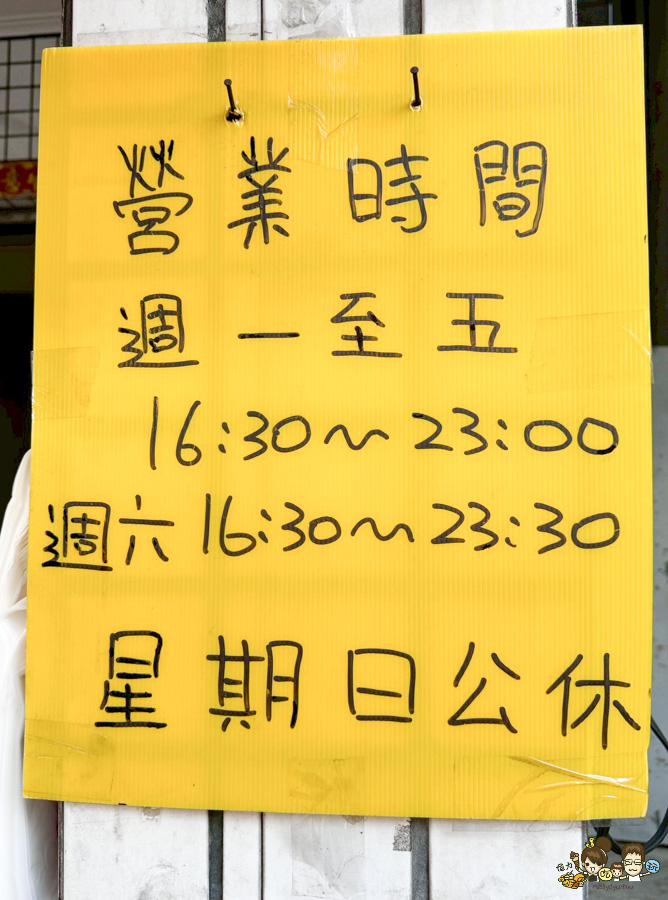 營業時間
週一至五
16:30～23:00
週六16:30～23:30
星期日公休